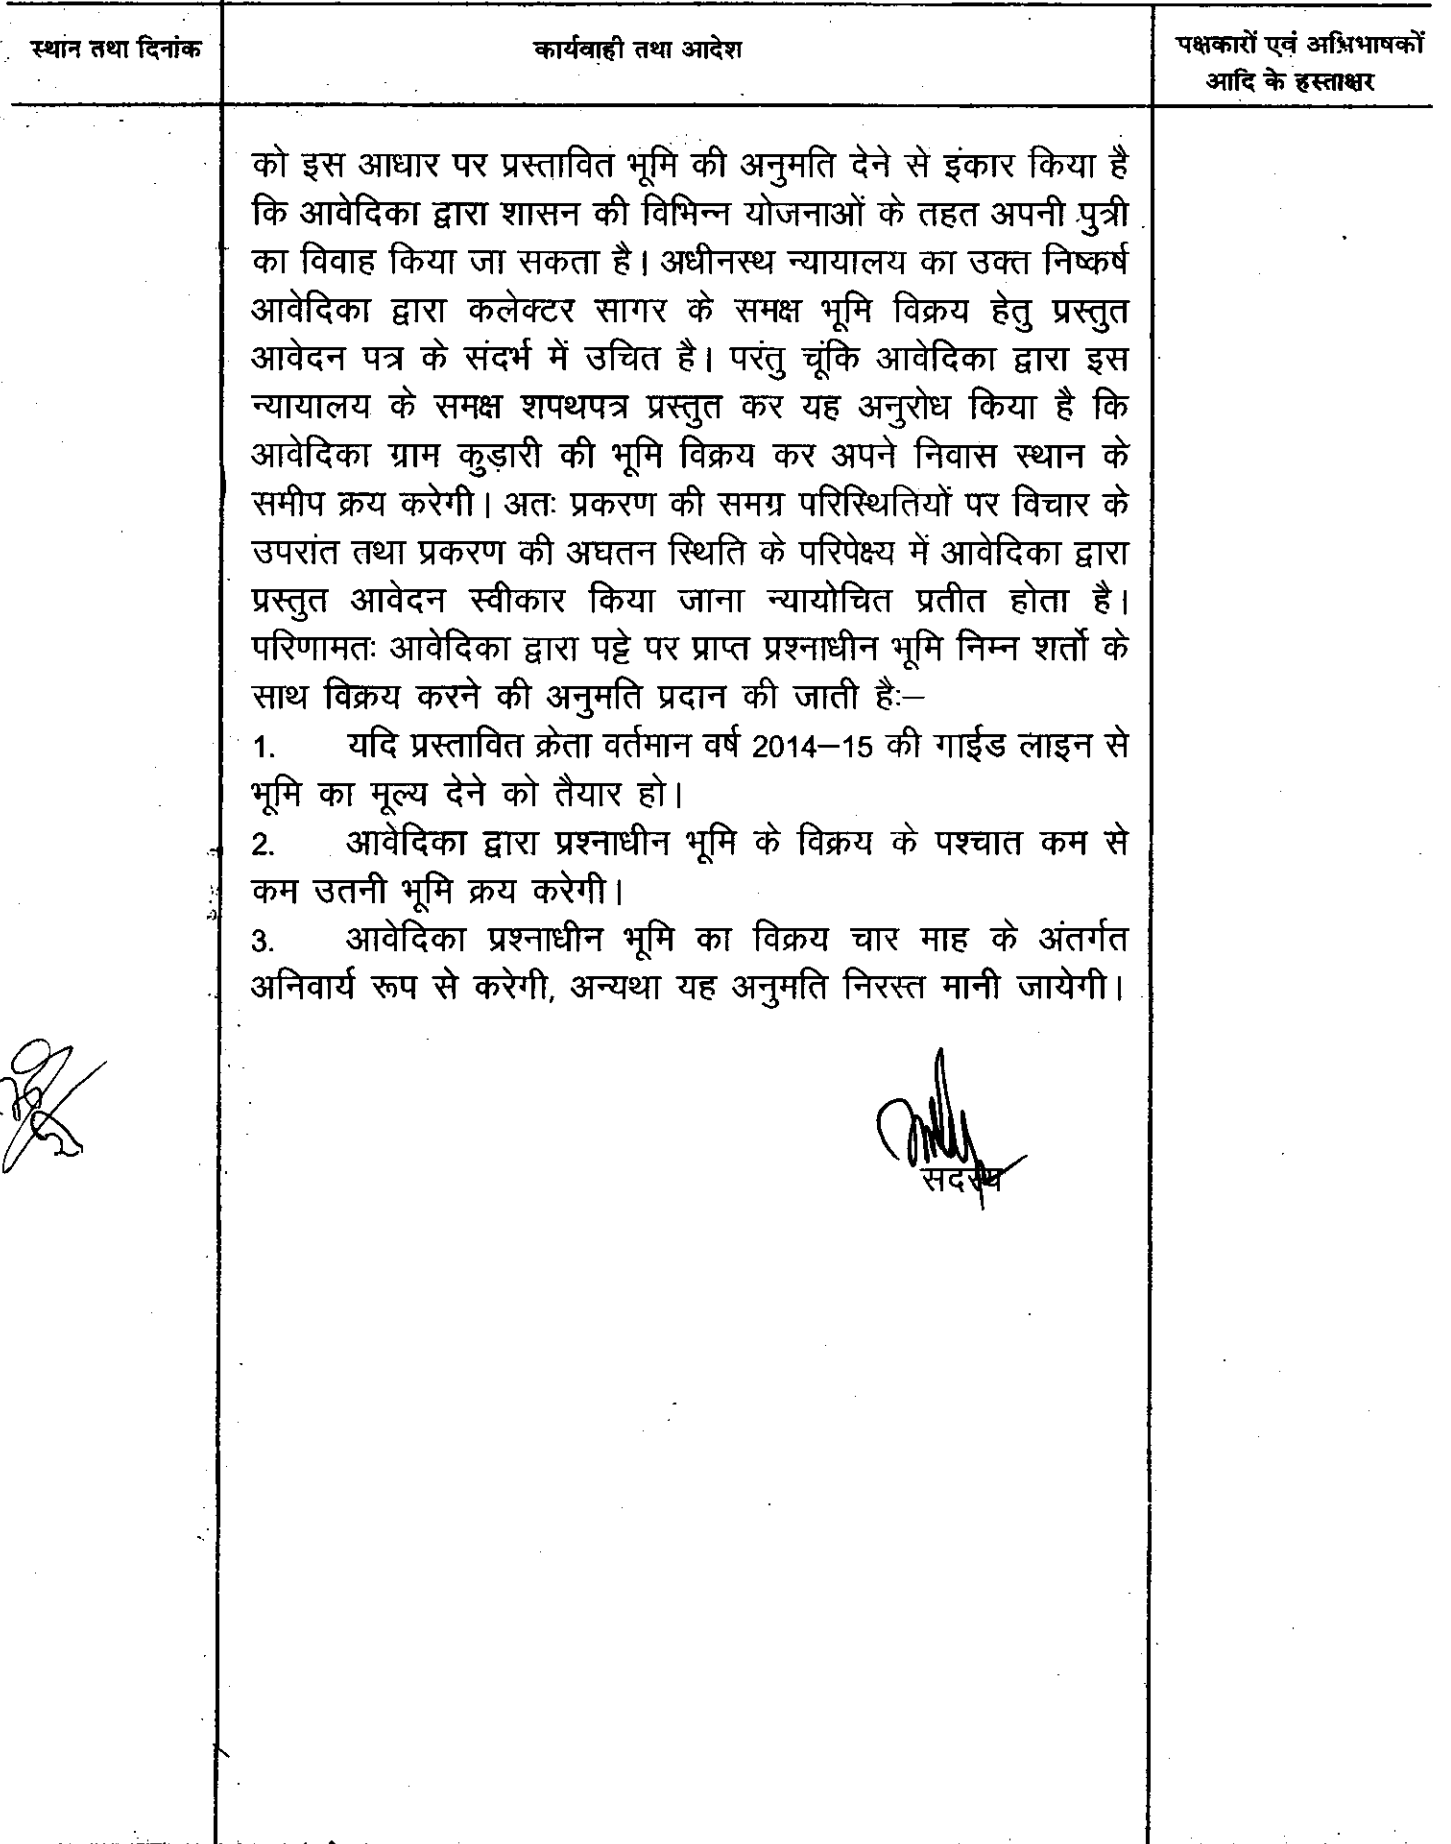 स्थान तथा दिनांक
कार्यवाही तथा आदेश
पक्षकारों एवं अभिभाषकों
आदि के हस्ताक्षर
को इस आधार पर प्रस्तावित भूमि की अनुमति देने से इंकार किया है
कि आवेदिका द्वारा शासन की विभिन्न योजनाओं के तहत अपनी पुत्री
का विवाह किया जा सकता है। अधीनस्थ न्यायालय का उक्त निष्कर्ष
आवेदिका द्वारा कलेक्टर सागर के समक्ष भूमि विक्रय हेतु प्रस्तुत
आवेदन पत्र के संदर्भ में उचित है। परंतु चूंकि आवेदिका द्वारा इस
न्यायालय के समक्ष शपथपत्र प्रस्तुत कर यह अनुरोध किया है कि
आवेदिका ग्राम कुड़ारी की भूमि विक्रय कर अपने निवास स्थान के
समीप क्रय करेगी। अतः प्रकरण की समग्र परिस्थितियों पर विचार के
उपरांत तथा प्रकरण की अघतन स्थिति के परिपेक्ष्य में आवेदिका द्वारा
प्रस्तुत आवेदन स्वीकार किया जाना न्यायोचित प्रतीत होता है।
परिणामतः आवेदिका द्वारा पट्टे पर प्राप्त प्रश्नाधीन भूमि निम्न शर्तो के
साथ विक्रय करने की अनुमति प्रदान की जाती हैः–
1. यदि प्रस्तावित क्रेता वर्तमान वर्ष 2014–15 की गाईड लाइन से
भूमि का मूल्य देने को तैयार हो।
2. आवेदिका द्वारा प्रश्नाधीन भूमि के विक्रय के पश्चात कम से
कम उतनी भूमि क्रय करेगी।
3. आवेदिका प्रश्नाधीन भूमि का विक्रय चार माह के अंतर्गत
अनिवार्य रूप से करेगी, अन्यथा यह अनुमति निरस्त मानी जायेगी।
सदस्य